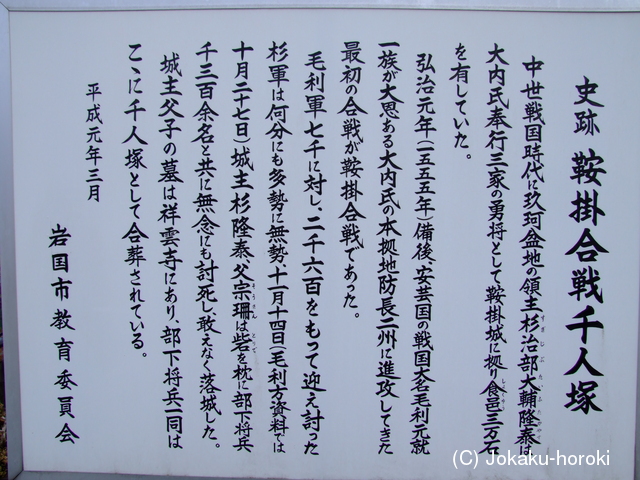 史跡 鞍掛合戦千人塚
中世戦国時代に玖珂盆地の領主杉治部大輔隆泰は
大内氏奉行三家の勇将として鞍掛城に拠り食邑三万石
を有していた。
弘治元年(一五五五年)備後、安芸国の戦国大名毛利元就
一族が大恩ある大内氏の本拠地防長二州に進攻してきた
最初の合戦が鞍掛合戦であった。
毛利軍七千に対し、二千六百をもって迎え討った
杉軍は何分にも多勢に無勢、十一月十四日(毛利方資料では
十月二十七日)城主杉隆泰、父宗珊は砦を枕に部下将兵
千三百余名と共に無念にも討死し、敢えなく落城した。
城主父子の墓は祥雲寺にあり、部下将兵一同は
ここに千人塚として合葬されている。
平成元年三月
岩国市教育委員会
(C) Jokaku-horoki